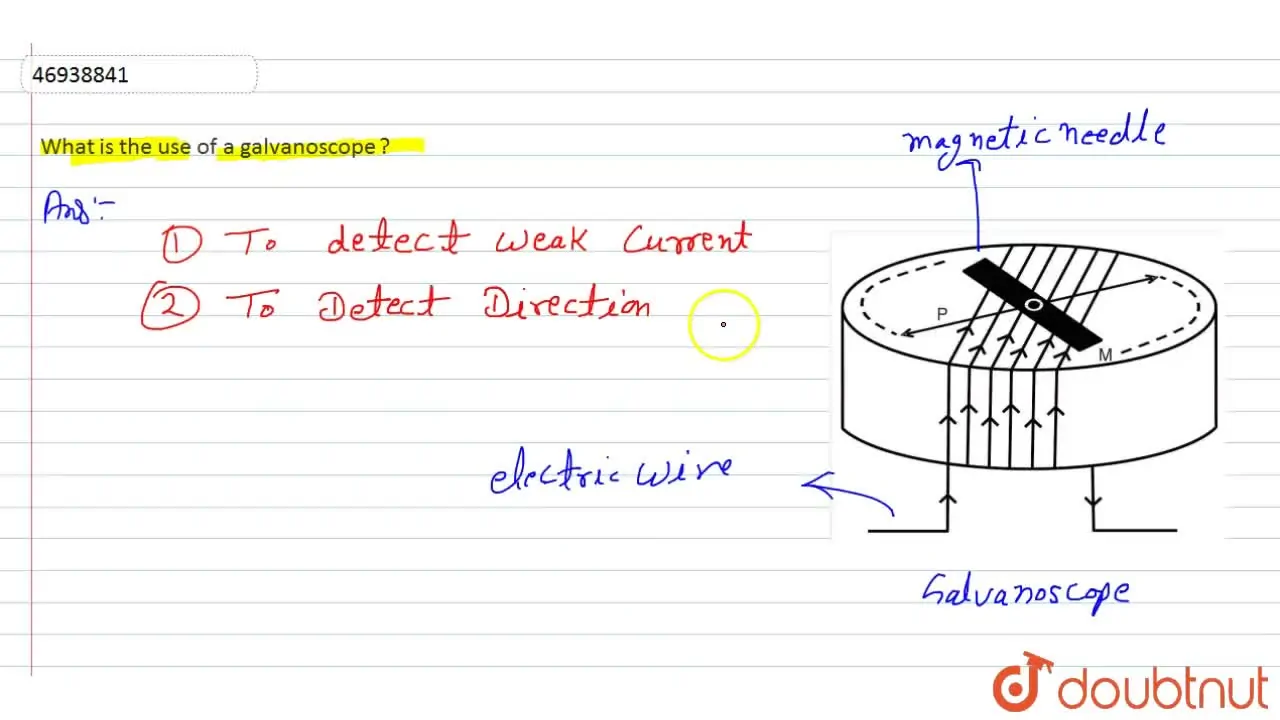 46938841
What is the use of a galvanoscope ?
Ans:-
① To detect weak Current
② To Detect Direction
magnetic needle
P
M
electric wire
Galvanoscope
doubtnut